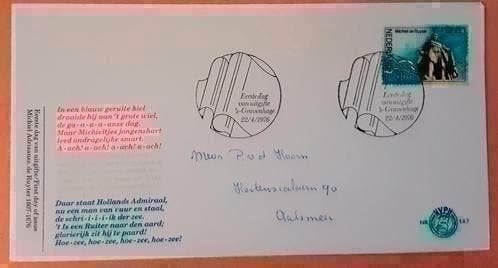 Eerste dag van uitgifte/First day of issue
Michiel Adriaansz. de Ruyter 1607-1676
In een blauw geruite kiel
draaide hij aan 't grote wiel,
de ga-a-a-a-anse dag.
Maar Michieltjes jongenshart
leed ondragelijke smart.
A-ach! a-ach! a-ach! a-ach!
Daar staat Hollands Admiraal,
nu een man van vuur en staal,
de schri-i-i-i-ik der zee.
't Is een Ruiter naar den aard;
glorierijk zit hij te paard!
Hoe-zee, hoe-zee, hoe-zee, hoe-zee!
Eerste dag
van uitgifte
's-Gravenhage
22/4/1976
Michiel de Ruyter
NEDERLAND
Eerste dag
van uitgifte
's-Gravenhage
22/4/1976
Aalsmeer
NVPH